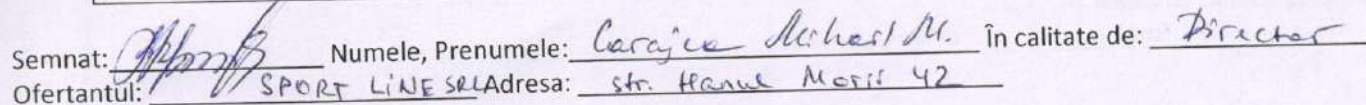 Semnat: Numele, Prenumele: Carajea Mihail M. În calitate de: Director
Ofertantul: SPORT LINE SRL Adresa: str. Hanul Morii 42